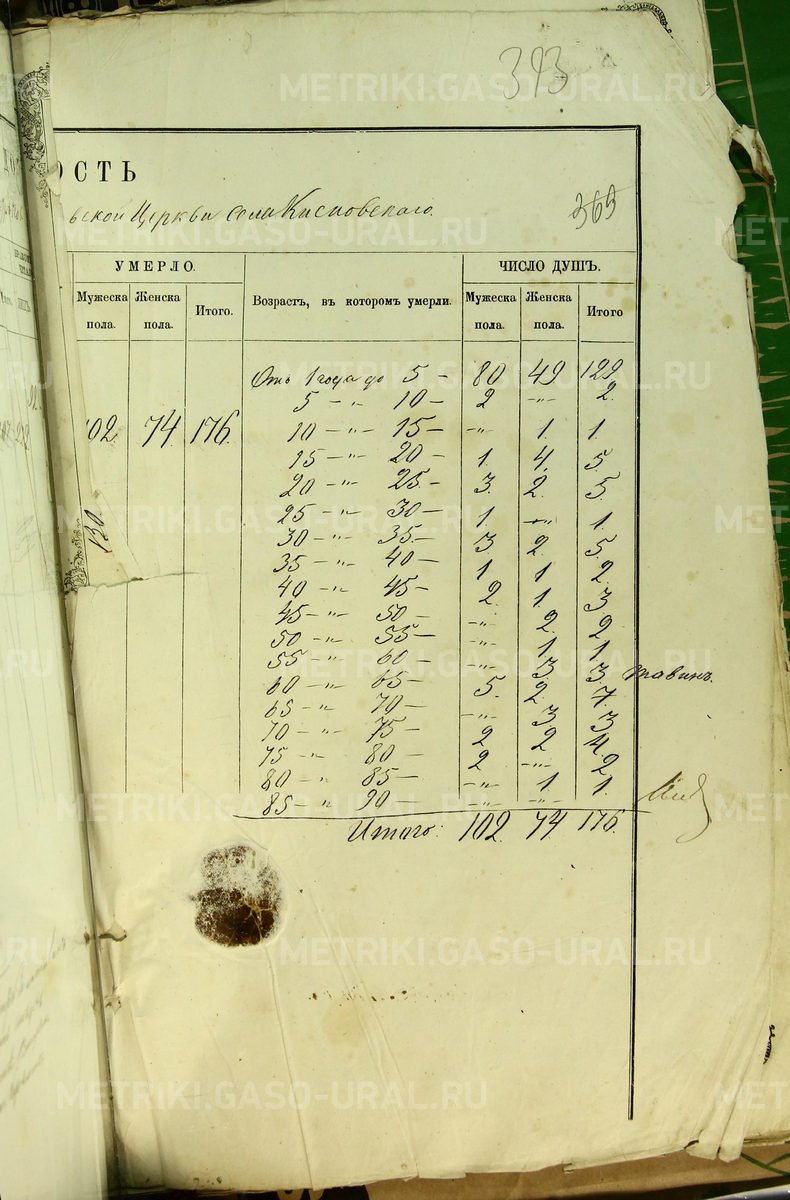 393
ОСТЬ
ьской Церкви села Кисловскаго.
369
УМЕРЛО. ЧИСЛО ДУШЪ.
Мужеска пола. Женска пола. Итого. Возрастъ, въ которомъ умерли. Мужеска пола. Женска пола. Итого
Отъ 1 года до 5 – 80 49 129
5 – „ 10 – 2 –„– 2.
102 74 176
10 – „ – 15 – –„– 1. 1.
15 – „– 20 – 1. 4. 5.
20 – „– 25 – 3. 2. 5.
25 – „– 30 – 1. –„– 1.
130
30 – „– 35 – 3 2. 5.
35 – „– 40 – 1 1 2.
40 – „– 45 – 2. 1. 3
45 – „– 50 – –„– 2. 2
50 – „– 55 – –„– 1 1.
55 – „– 60 – –„– 3 3
60 – „– 65 – 5. 2. 7.
65 – „ 70 – –„– 3 3
70 – „– 75 – 2 2 4.
75 – „ 80 – 2. –„– 2
80 – „– 85 – –„– 1 1.
85 – „ 90 –„– –„–
Итого: 102. 74. 176.
METRIKI.GASO-URAL.RU